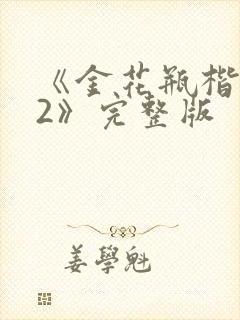 《金花瓶楷
2》完整版
姜學魁